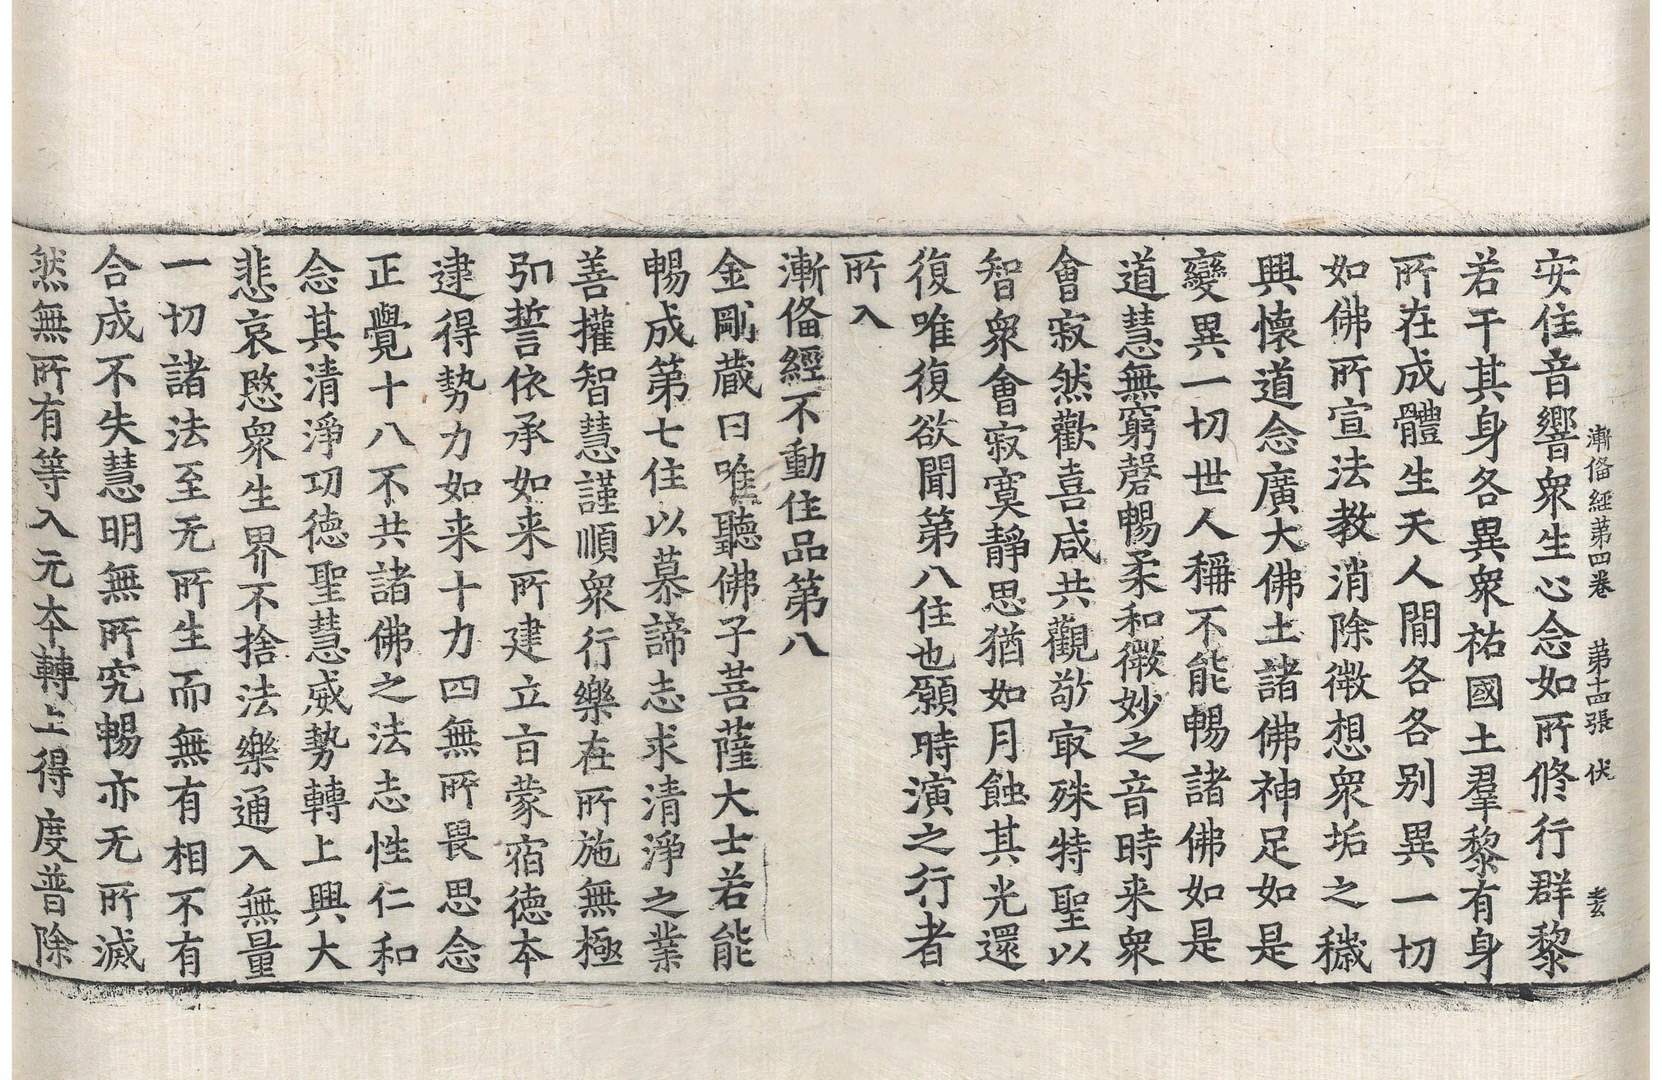 漸俻經第四卷　第十四張　伏
安住音響衆生心念如所修行群黎
若干其身各異衆祐國土羣黎有身
所在成體生天人間各各別異一切
如佛所宣法教消除微想衆垢之穢
興懷道念廣大佛土諸佛神足如是
變異一切世人稱不能暢諸佛如是
道慧無窮磬暢柔和微妙之音時来衆
會寂然歡喜咸共觀敬㝡殊特聖以
智衆會寂寞靜思猶如月蝕其光還
復唯復欲聞第八住也願時演之行者
所入
漸俻經不動住品第八
金剛藏曰唯聽佛子菩薩大士若能
暢成第七住以慕諦志求清淨之業
善權智慧謹順衆行樂在所施無極
引誓依承如来所建立旨蒙宿德本
逮得勢力如来十力四無所畏思念
正覺十八不共諸佛之法志性仁和
念其清淨功德聖慧威勢轉上興大
悲哀愍衆生界不捨法樂通入無量
一切諸法至无所生而無有相不有
合成不失慧明無所究暢亦无所滅
然無所有等入元本轉上得度普除